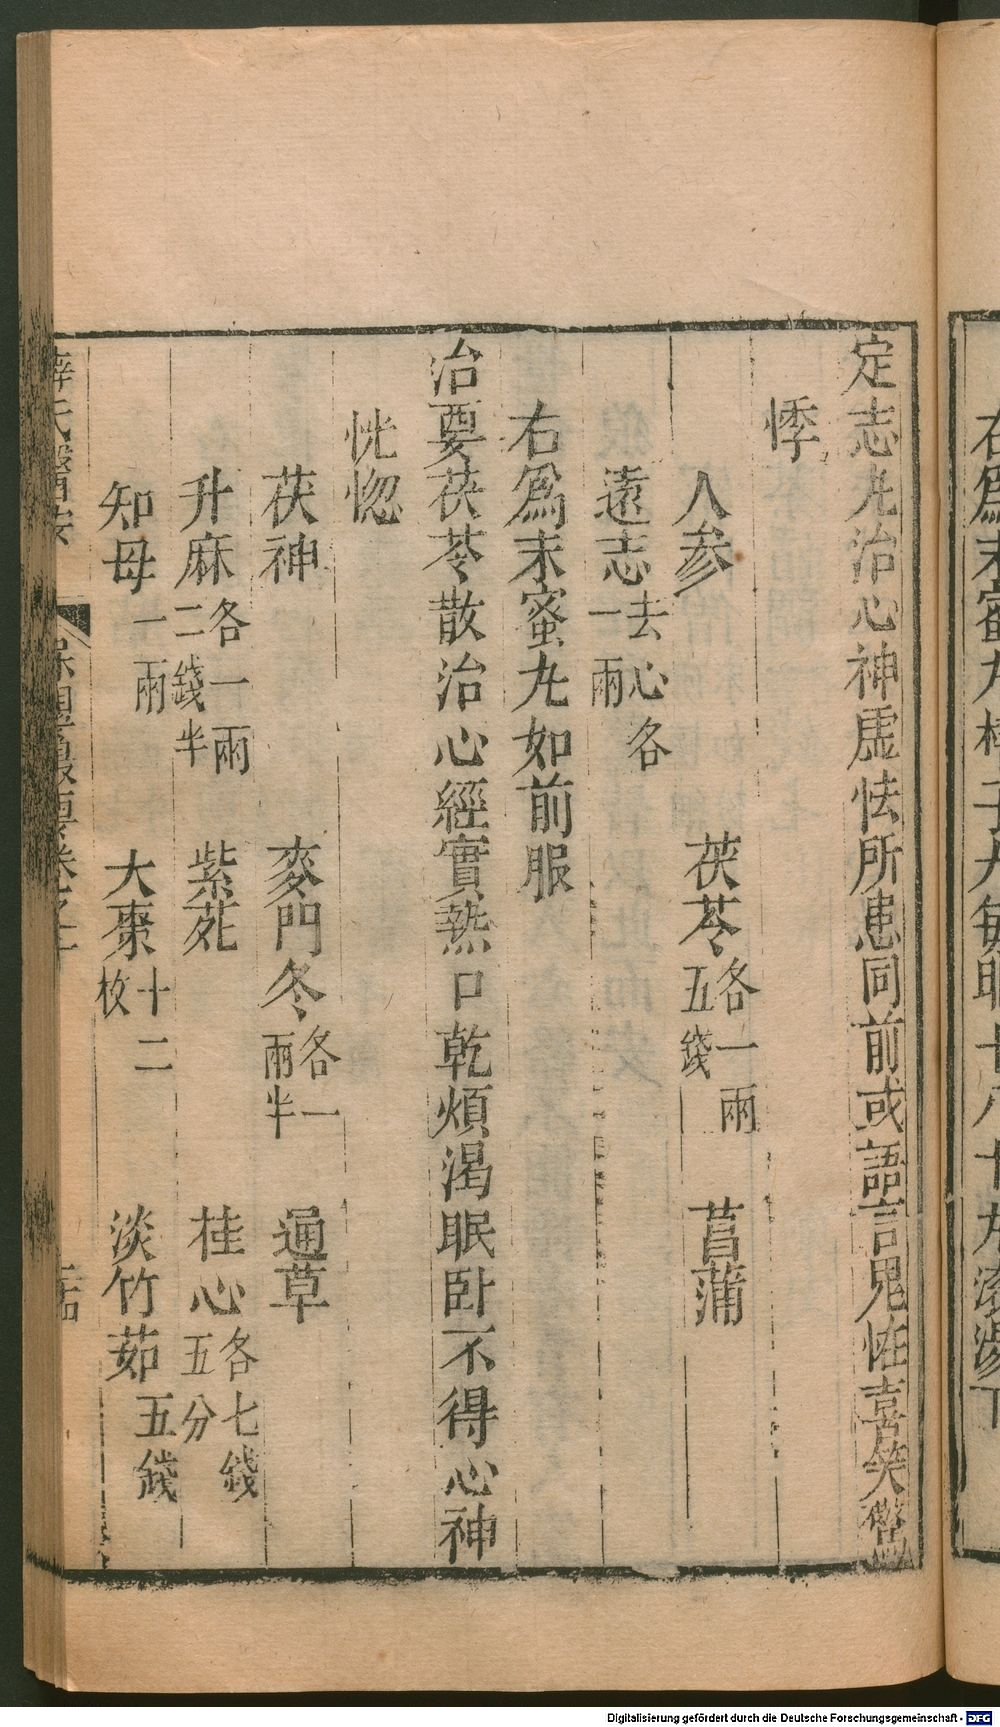 右爲末蜜丸梧子大每服七八十丸滾湯下
定志丸治心神虛怯所患同前或語言鬼怪喜笑驚
悸
人參 茯苓各一兩五錢 菖蒲
遠志去心各一兩
右爲末蜜丸如前服
治要茯苓散治心經實熱口乾煩渴眠卧不得心神
恍惚
茯神 麥門冬各一兩半 通草
升麻各一兩二錢半 紫菀 桂心各七錢五分
知母一兩 大棗十二枚 淡竹茹五錢
薛氏醫按 保嬰撮要卷之十
Digitalisierung gefördert durch die Deutsche Forschungsgemeinschaft - DFG